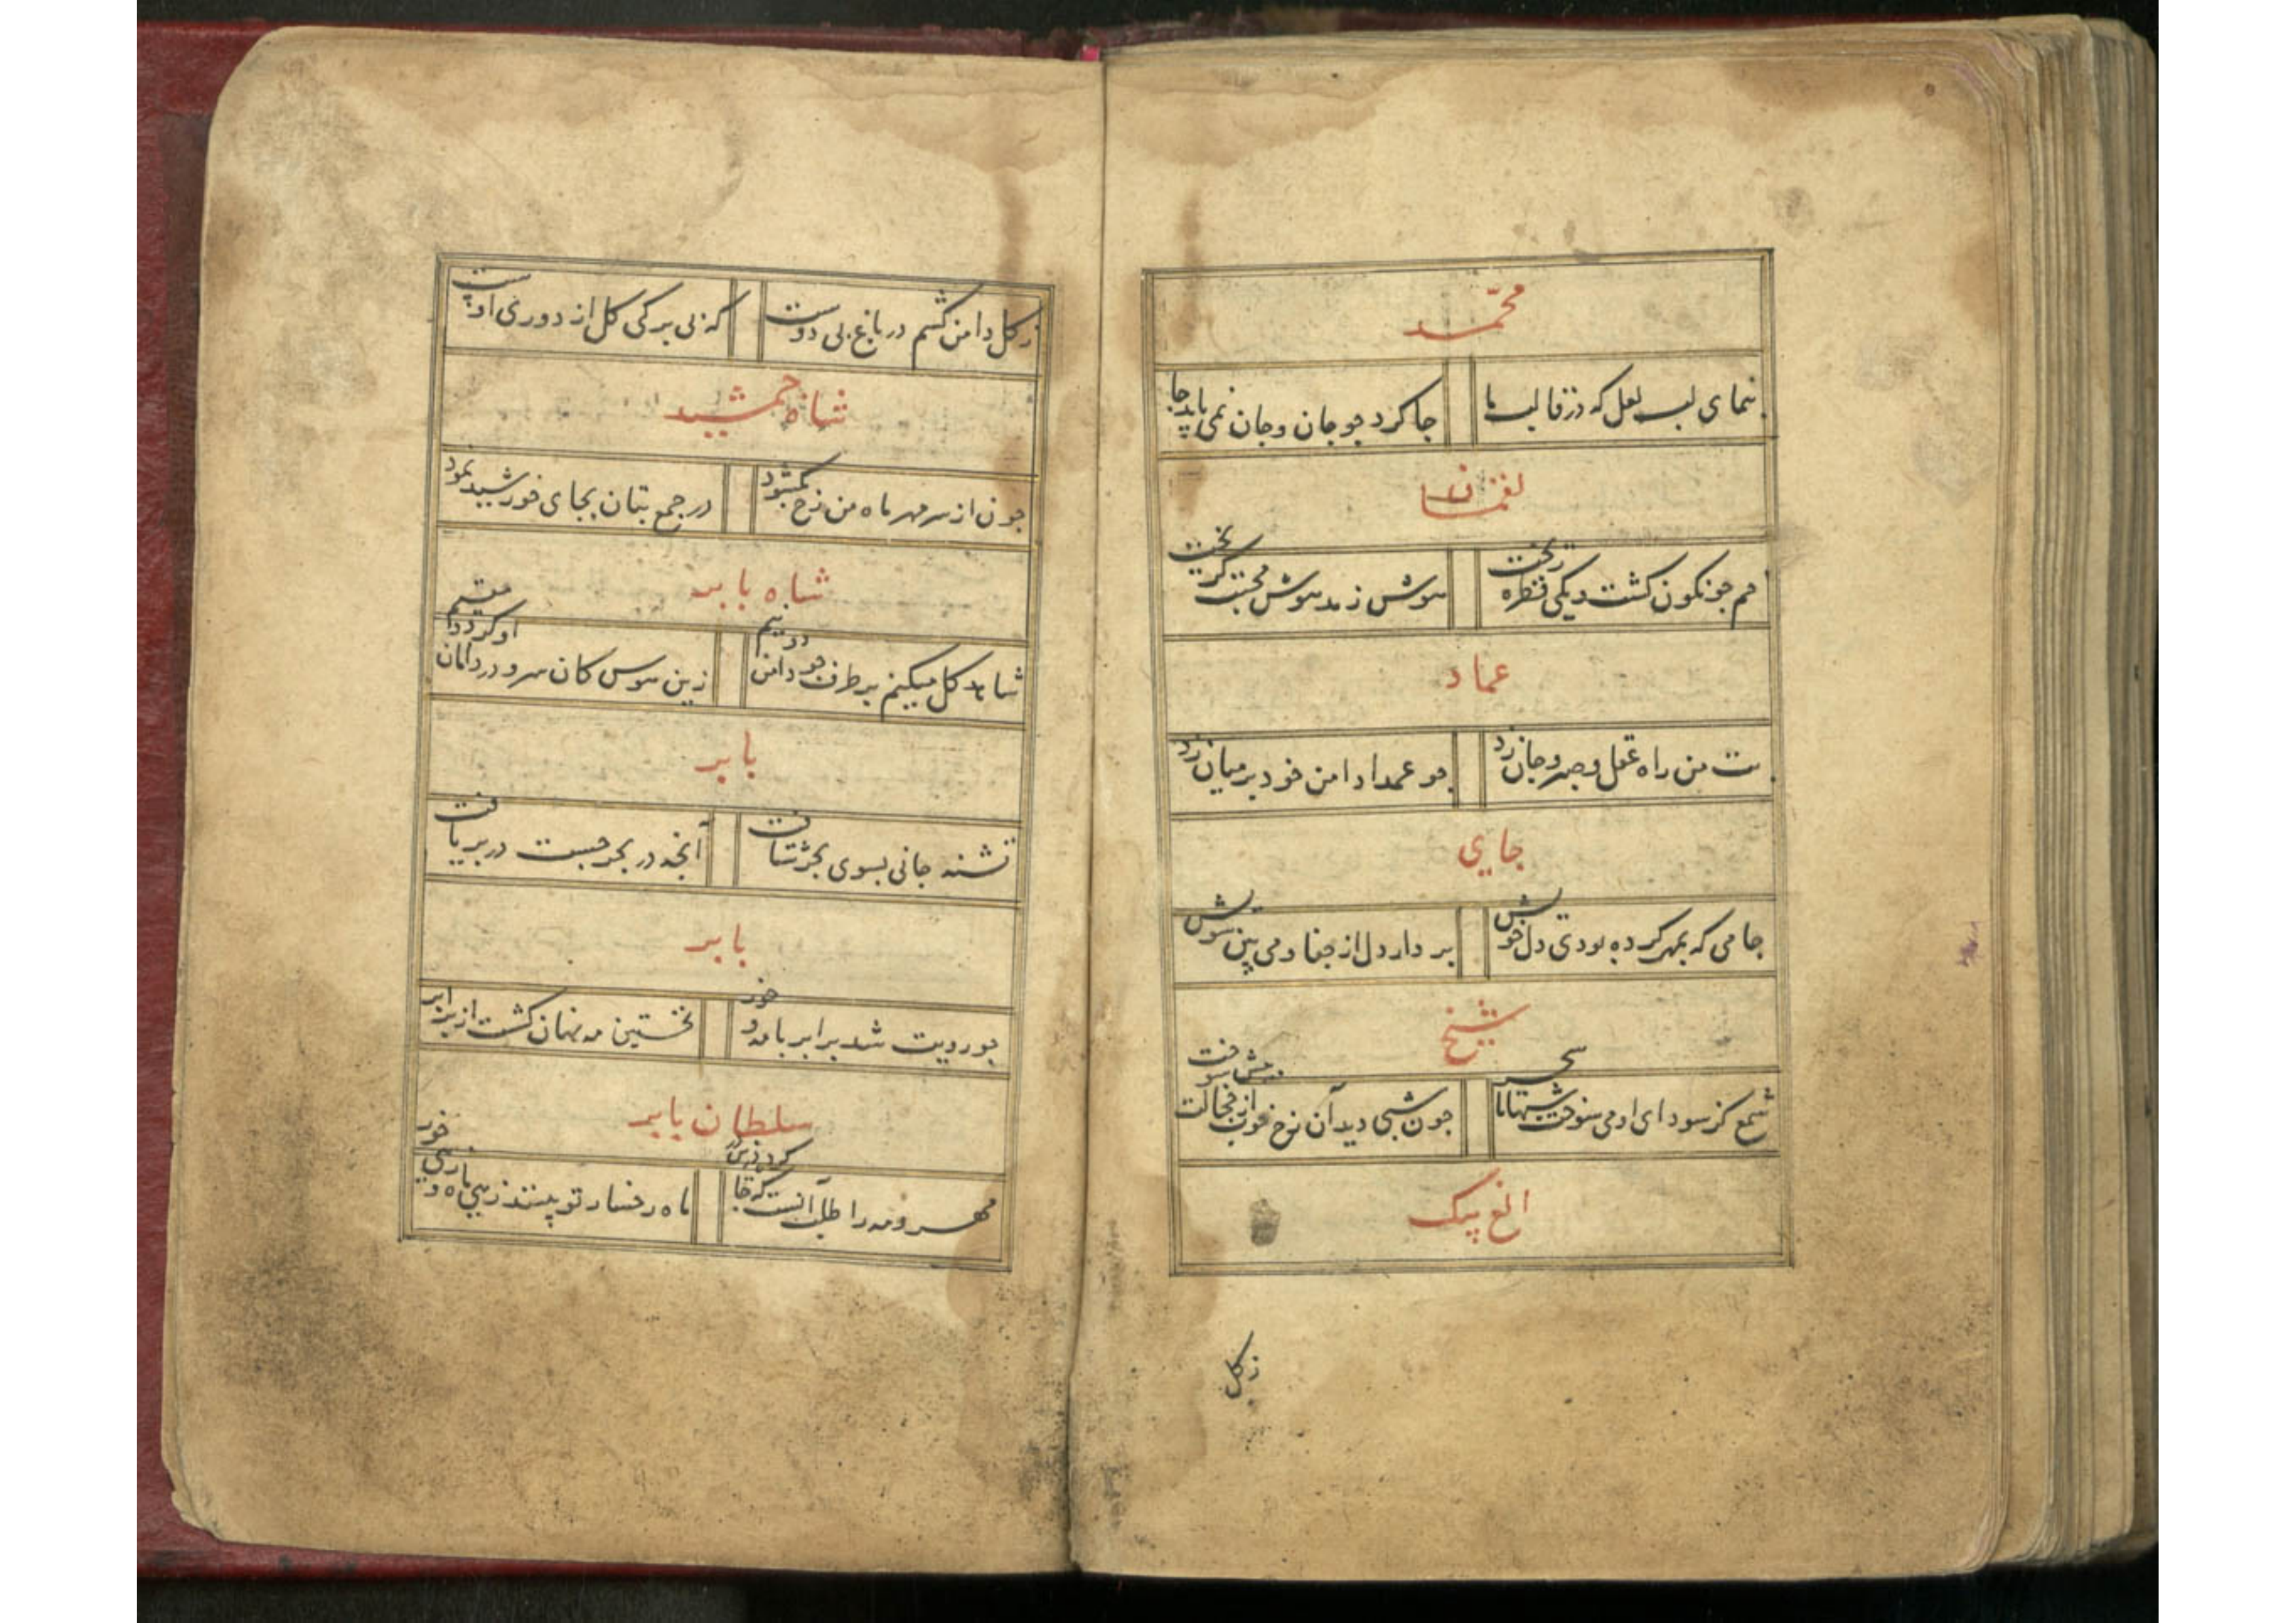 محمّد
بنمای لب لعل که در قالب ما جا کرد جو جان و جان نمی یابد جا
لقمان
جم جو نکون کشت و یکی قطره ریخت هوش ز مدهوش محبت کریخت
عماد
بت من راه عقل و صبر و جان زد جو عمدا دامن خود بر میان زد
جایی
جامی که بمهر کرده بودی دل خویش بر دار دل از جفا و می بین سویش
شیخ
شمع کز سودای او می سوخت شبها تا سحر جون شبی دید آن رخ خوب از خجالت سوخت
الغ بیک
ز کل
ز کل دامن کشم در باغ بی دوست که بی برکی کل از دوری اوست
شاه جمشید
جون از سر مهر ماه من رخ بکشود در جمع بتان بجای خورشید نمود
شاه بابر
شاهد کل میکنم بر طرف جو دامن دو نیم زین هوس کان سرو در دامان او کردد مقیم
بابر
تشنه جانی بسوی بحر شتافت آنجه در بحر جست در بر یافت
بابر
جو رویت شد برابر با مه و خور نخستین مه نهان کشت از برابر
سلطان بابر
مهر و مه را طلب آنست که جا ماه رخسار تو بینند زهی ماه و خور